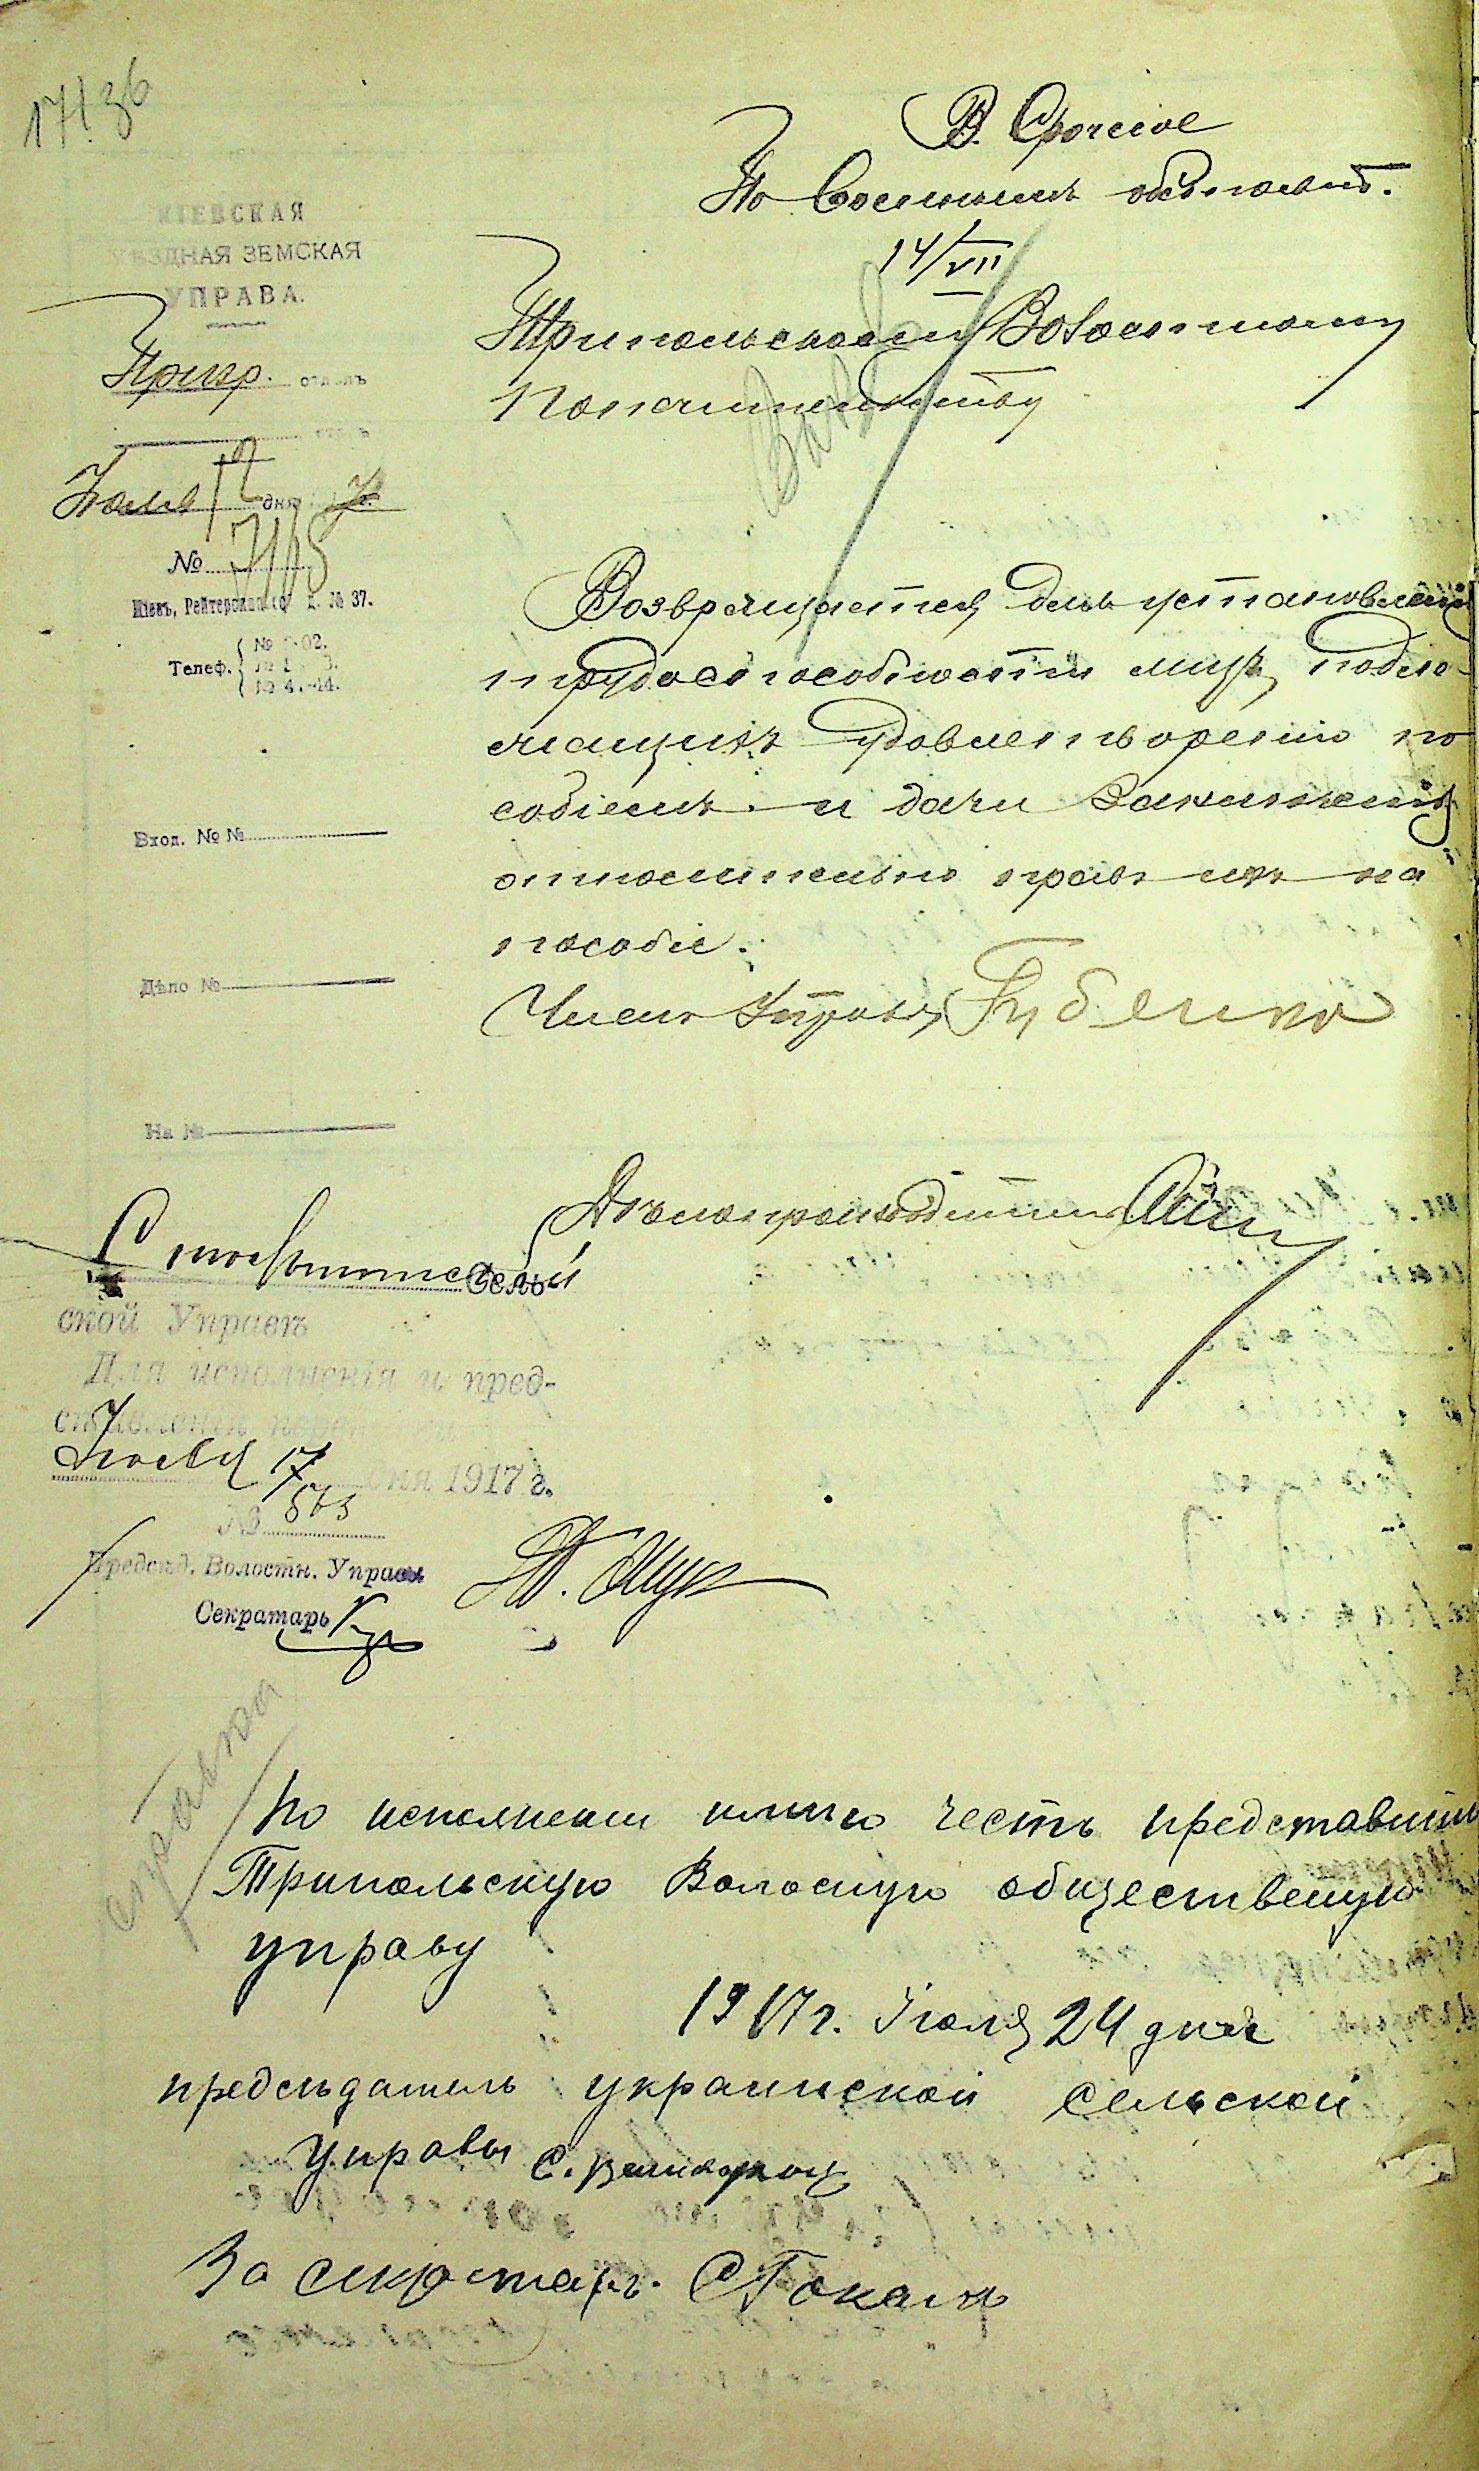 В. Срочное
14/VII
КІЕВСКАЯ
УѢЗДНАЯ ЗЕМСКАЯ
УПРАВА.
Призр. отдѣлъ
столъ
Іюля 12 дня
№ 7105
Кіевъ, Рейтерская ул. д. № 37.
Телеф.
Вход. № №
Дѣло №
На №
Трипольскому Волостному
Попечительству
Возвращается для установленія
трудоспособности лицъ, подле-
жащихъ удовлетворенію по
собіемъ и дачи заключенія
относительно правъ ихъ на
пособіе.
Членъ Управы Губенко
Дѣлопроизводитель
Сель
ской Управѣ
Для исполненія и пред-
ставленія переписки
Іюля 17 дня 1917 г.
№ 563
Предсѣд. Волостн. Управы
Секратарь
справка
По исполнении имѣю честь представить
Трипольскую Волосную общественую
управу
1917 г. Іюля 24 дня
предсѣдатель украинской сельской
Управы С.
За секретаря